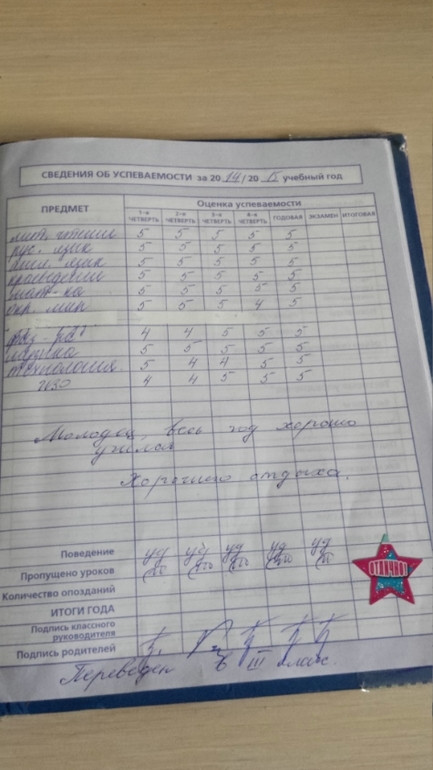 СВЕДЕНИЯ ОБ УСПЕВАЕМОСТИ за 20 14 / 20 15 учебный год
ПРЕДМЕТ Оценка успеваемости
1-я ЧЕТВЕРТЬ 2-я ЧЕТВЕРТЬ 3-я ЧЕТВЕРТЬ 4-я ЧЕТВЕРТЬ ГОДОВАЯ ЭКЗАМЕН ИТОГОВАЯ
лит. чтение 5 5 5 5 5
рус. язык 5 5 5 5 5
язык 5 5 5 5 5
краеведение 5 5 5 5 5
мат-ка 5 5 5 5 5
окр. мир 5 5 5 4 5
физ-ра 4 4 5 5 5
музыка 5 5 5 5 5
технология 5 4 4 5 5
ИЗО 4 4 5 5 5
Молодец весь год хорошо
учился
Хорошего отдыха.
Поведение уд уд уд уд уд
Пропущено уроков
Количество опозданий
ИТОГИ ГОДА
Подпись классного
руководителя
Подпись родителей
Переведен в III класс.
ОТЛИЧНО!